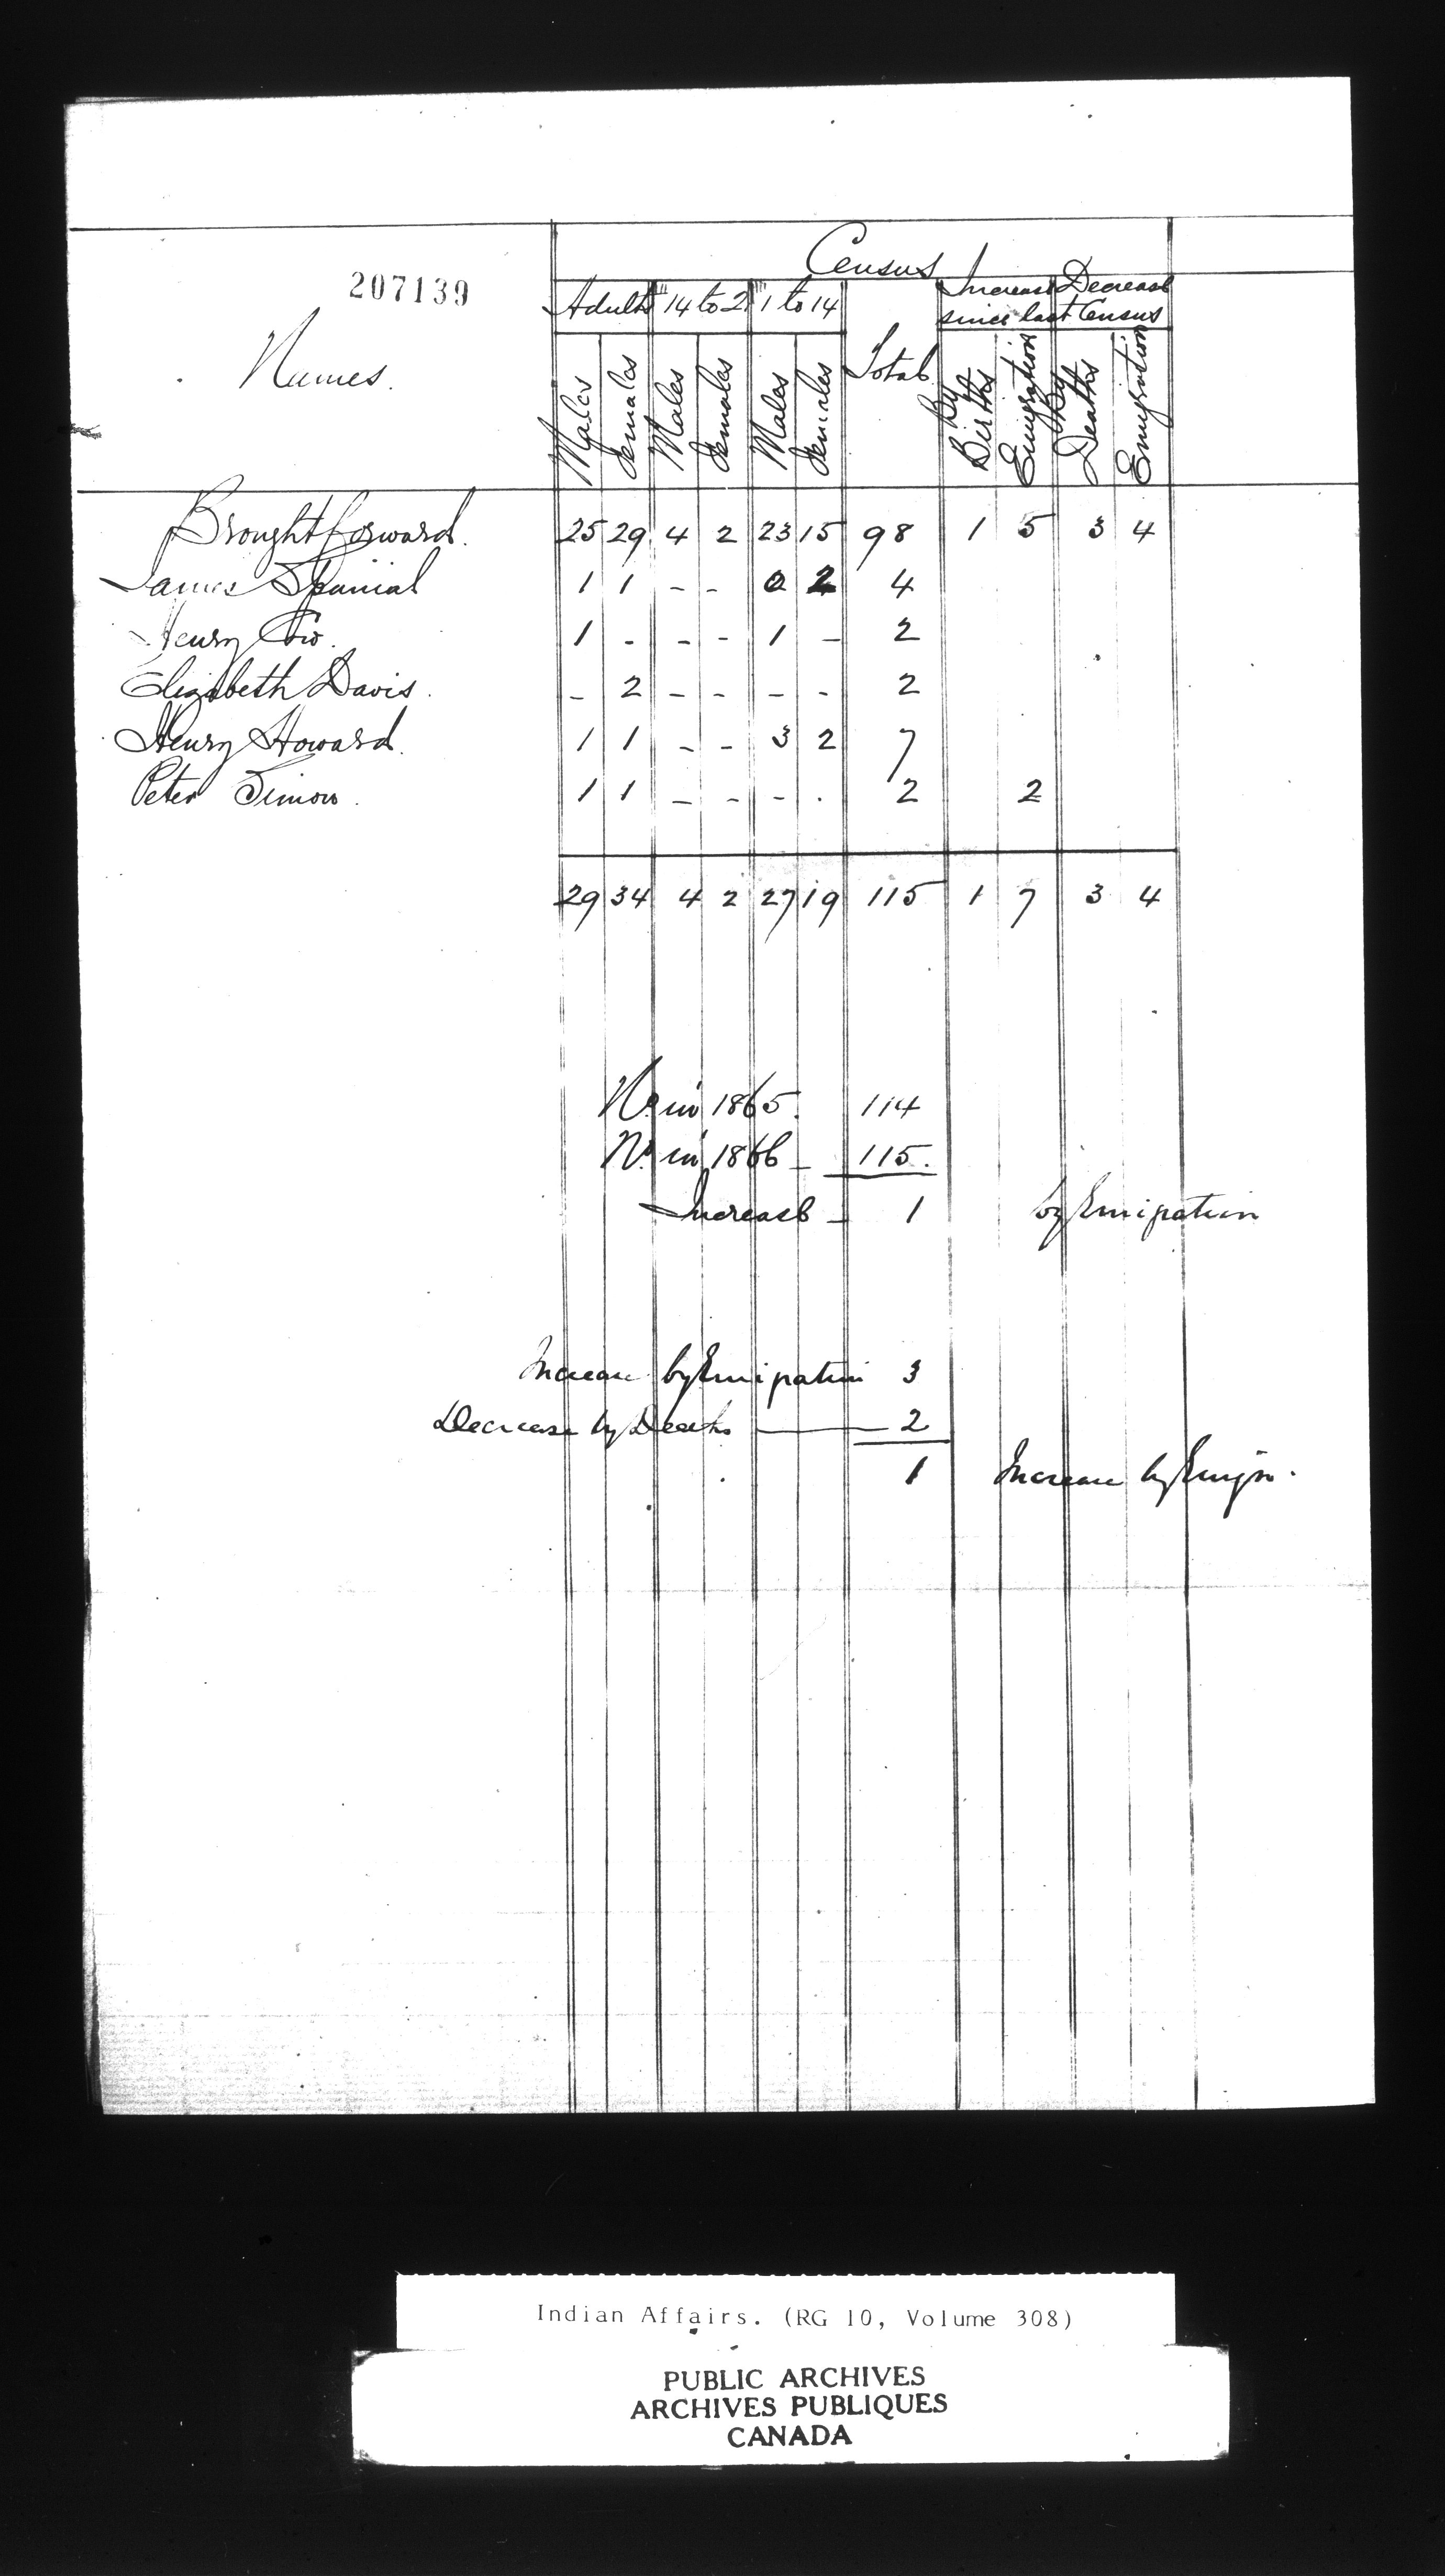 Census
207139
Adults 14 to 21 1 to 14 Increase Decrease
since last Census
Names. Males Females Males Females Males Females Total By Births Emigration By Deaths Emigration
Brought forward. 25 29 4 2 23 15 98 1 5 3 4
James Spanial 1 1 - - 0 2 4
Henry 1 - - - 1 - 2
Elizabeth Davis. - 2 - - - - 2
Henry Howard. 1 1 - - 3 2 7
Peter Simon. 1 1 - - - . 2 2
29 34 4 2 27 19 115 1 7 3 4
No. in 1865. 114
No. in 1866 - 115.
Increase - 1 by Emigration
Increase by Emigration 3
Decrease by Deaths — 2
1 Increase by Emign.
Indian Affairs. (RG 10, Volume 308)
PUBLIC ARCHIVES
ARCHIVES PUBLIQUES
CANADA